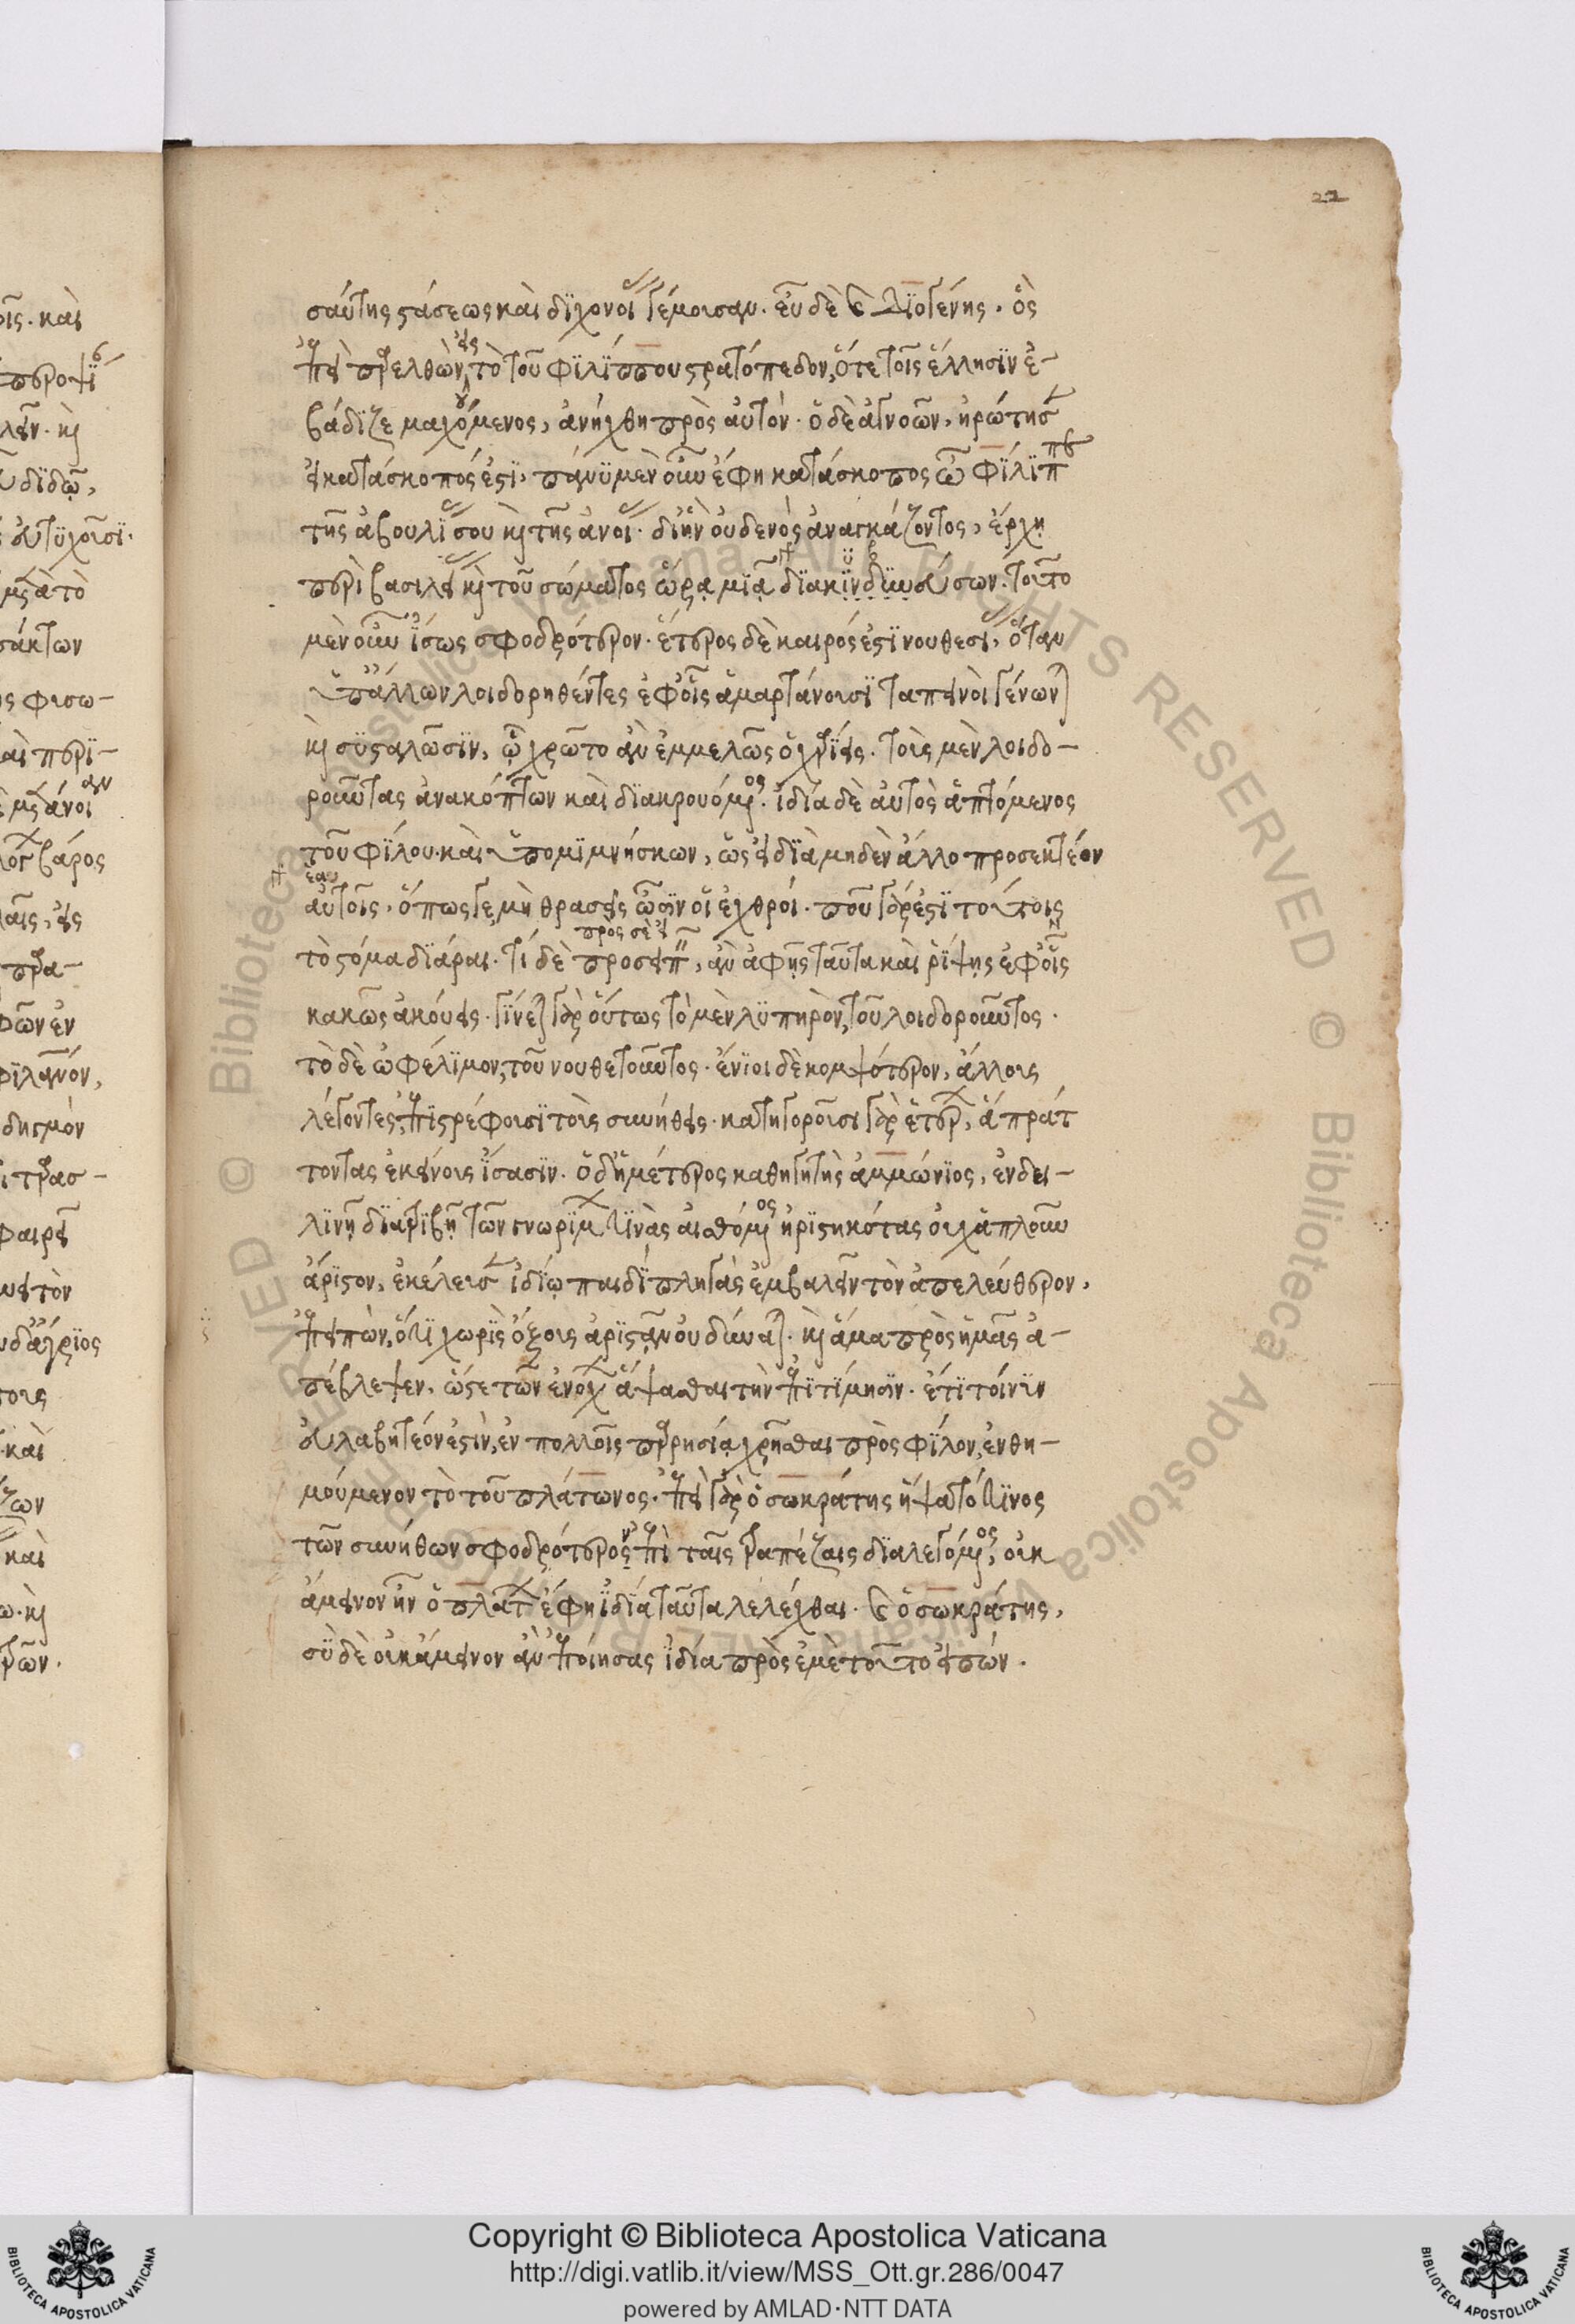 22
σαύτης στάσεως καὶ διχονοί γέμουσαν. εὖ δὲ ὁ Διογένης. ὃς
ἐπεὶ παρελθὼν εἰς τὸ τοῦ φιλίππου στρατόπεδον, ὅτε τοῖς ἕλλησιν ἐ-
βάδιζε μαχόμενος, ἀνήχθη πρὸς αὐτόν. ὁ δὲ ἀγνοῶν, ἠρώτησ
εἰ κατάσκοπός ἐστι, πάνυ μὲν οὖν ἔφη κατάσκοπος ὦ φίλιππε
τῆς ἀβουλί σου καὶ τῆς ἀνοί. δι' ἣν οὐδενὸς ἀναγκάζοντος, ἔρχῃ
περὶ βασιλεί καὶ τοῦ σώματος ὥρᾳ μιᾷ διακινδυνεύσων. τοῦτο
μὲν οὖν ἴσως σφοδρότερον. ἕτερος δὲ καιρός ἐστι νουθεσί, ὅταν
ὑπ' ἄλλων λοιδορηθέντες ἐφ' οἷς ἁμαρτάνουσι ταπεινοὶ γένωνται
καὶ συσταλῶσιν, ᾧ χρῷτο ἂν ἐμμελῶς ὁ χαρίεις. τοὺς μὲν λοιδο-
ροῦντας ἀνακόπτων καὶ διακρουόμενος. ἰδία δὲ αὐτὸς ἁπτόμενος
τοῦ φίλου. καὶ ὑπομιμνήσκων, ὡς εἰ διὰ μηδὲν ἄλλο προσεκτέον
ἑαυ
αὐτοῖς, ὅπως γε μὴ θρασεῖς ὦσιν οἱ ἐχθροί. ποῦ γάρ ἐστι τούτοις
πρὸς σὲ εἰ
τὸ στόμα διάραι. τί δὲ προσειπ, ἂν ἀφῇς ταῦτα καὶ ῥίψῃς ἐφ' οἷς
κακῶς ἀκούεις. γίνεται γὰρ οὕτως τὸ μὲν λυπηρὸν, τοῦ λοιδοροῦντος.
τὸ δὲ ὠφέλιμον, τοῦ νουθετοῦντος. ἔνιοι δὲ κομψότερον, ἄλλους
λέγοντες, ἐπιστρέφουσι τοὺς συνήθεις. κατηγοροῦσι γὰρ ἑτέρ, ἃ πράτ
τοντας ἐκείνους ἴσασιν. ὁ δ' ἡμέτερος καθηγητὴς ἀμμώνιος, ἐν δει-
λινῇ διατριβῇ τῶν γνωρίμ τινὰς αἰσθόμενος ἠριστηκότας οὐχ ἁπλοῦν
ἄριστον, ἐκέλευσ ἰδίῳ παιδὶ πληγὰς ἐμβαλεῖν τὸν ἀπελεύθερον,
ἐπειπών, ὅτι χωρὶς ὄξους ἀριστᾶν οὐ δύναται. καὶ ἅμα πρὸς ἡμᾶς ἀ-
πέβλεψεν, ὥστε τῶν ἐνόχ ἅψασθαι τὴν ἐπιτίμησιν. ἔτι τοίνυν
εὐλαβητέον ἐστὶν, ἐν πολλοῖς παρρησίᾳ χρῆσθαι πρὸς φίλον, ἐνθη-
μούμενον τὸ τοῦ πλάτωνος. ἐπεὶ γὰρ ὁ σωκράτης ἥψατό τινος
τῶν συνήθων σφοδρότερον ἐπὶ ταῖς τραπέζαις διαλεγόμενος, οὐκ
ἄμεινον ἦν ὁ πλάτ ἔφη ἰδία ταῦτα λελέχθαι. καὶ ὁ σωκράτης,
σὺ δὲ οὐκ ἄμεινον ἂν ἐποίησας ἰδία πρὸς ἐμὲ τοῦτο εἰπών.
Copyright © Biblioteca Apostolica Vaticana
http://digi.vatlib.it/view/MSS_Ott.gr.286/0047
powered by AMLAD·NTT DATA